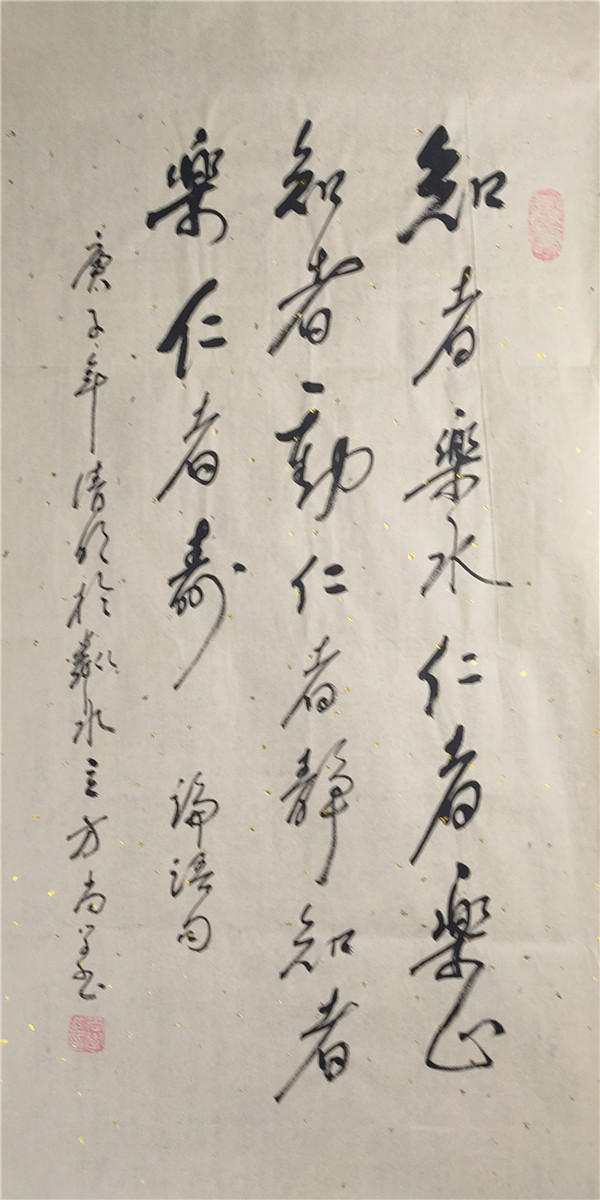 知者樂水仁者樂山
知者動仁者靜知者
樂仁者壽 論語句
庚子年清明於水立方尚書